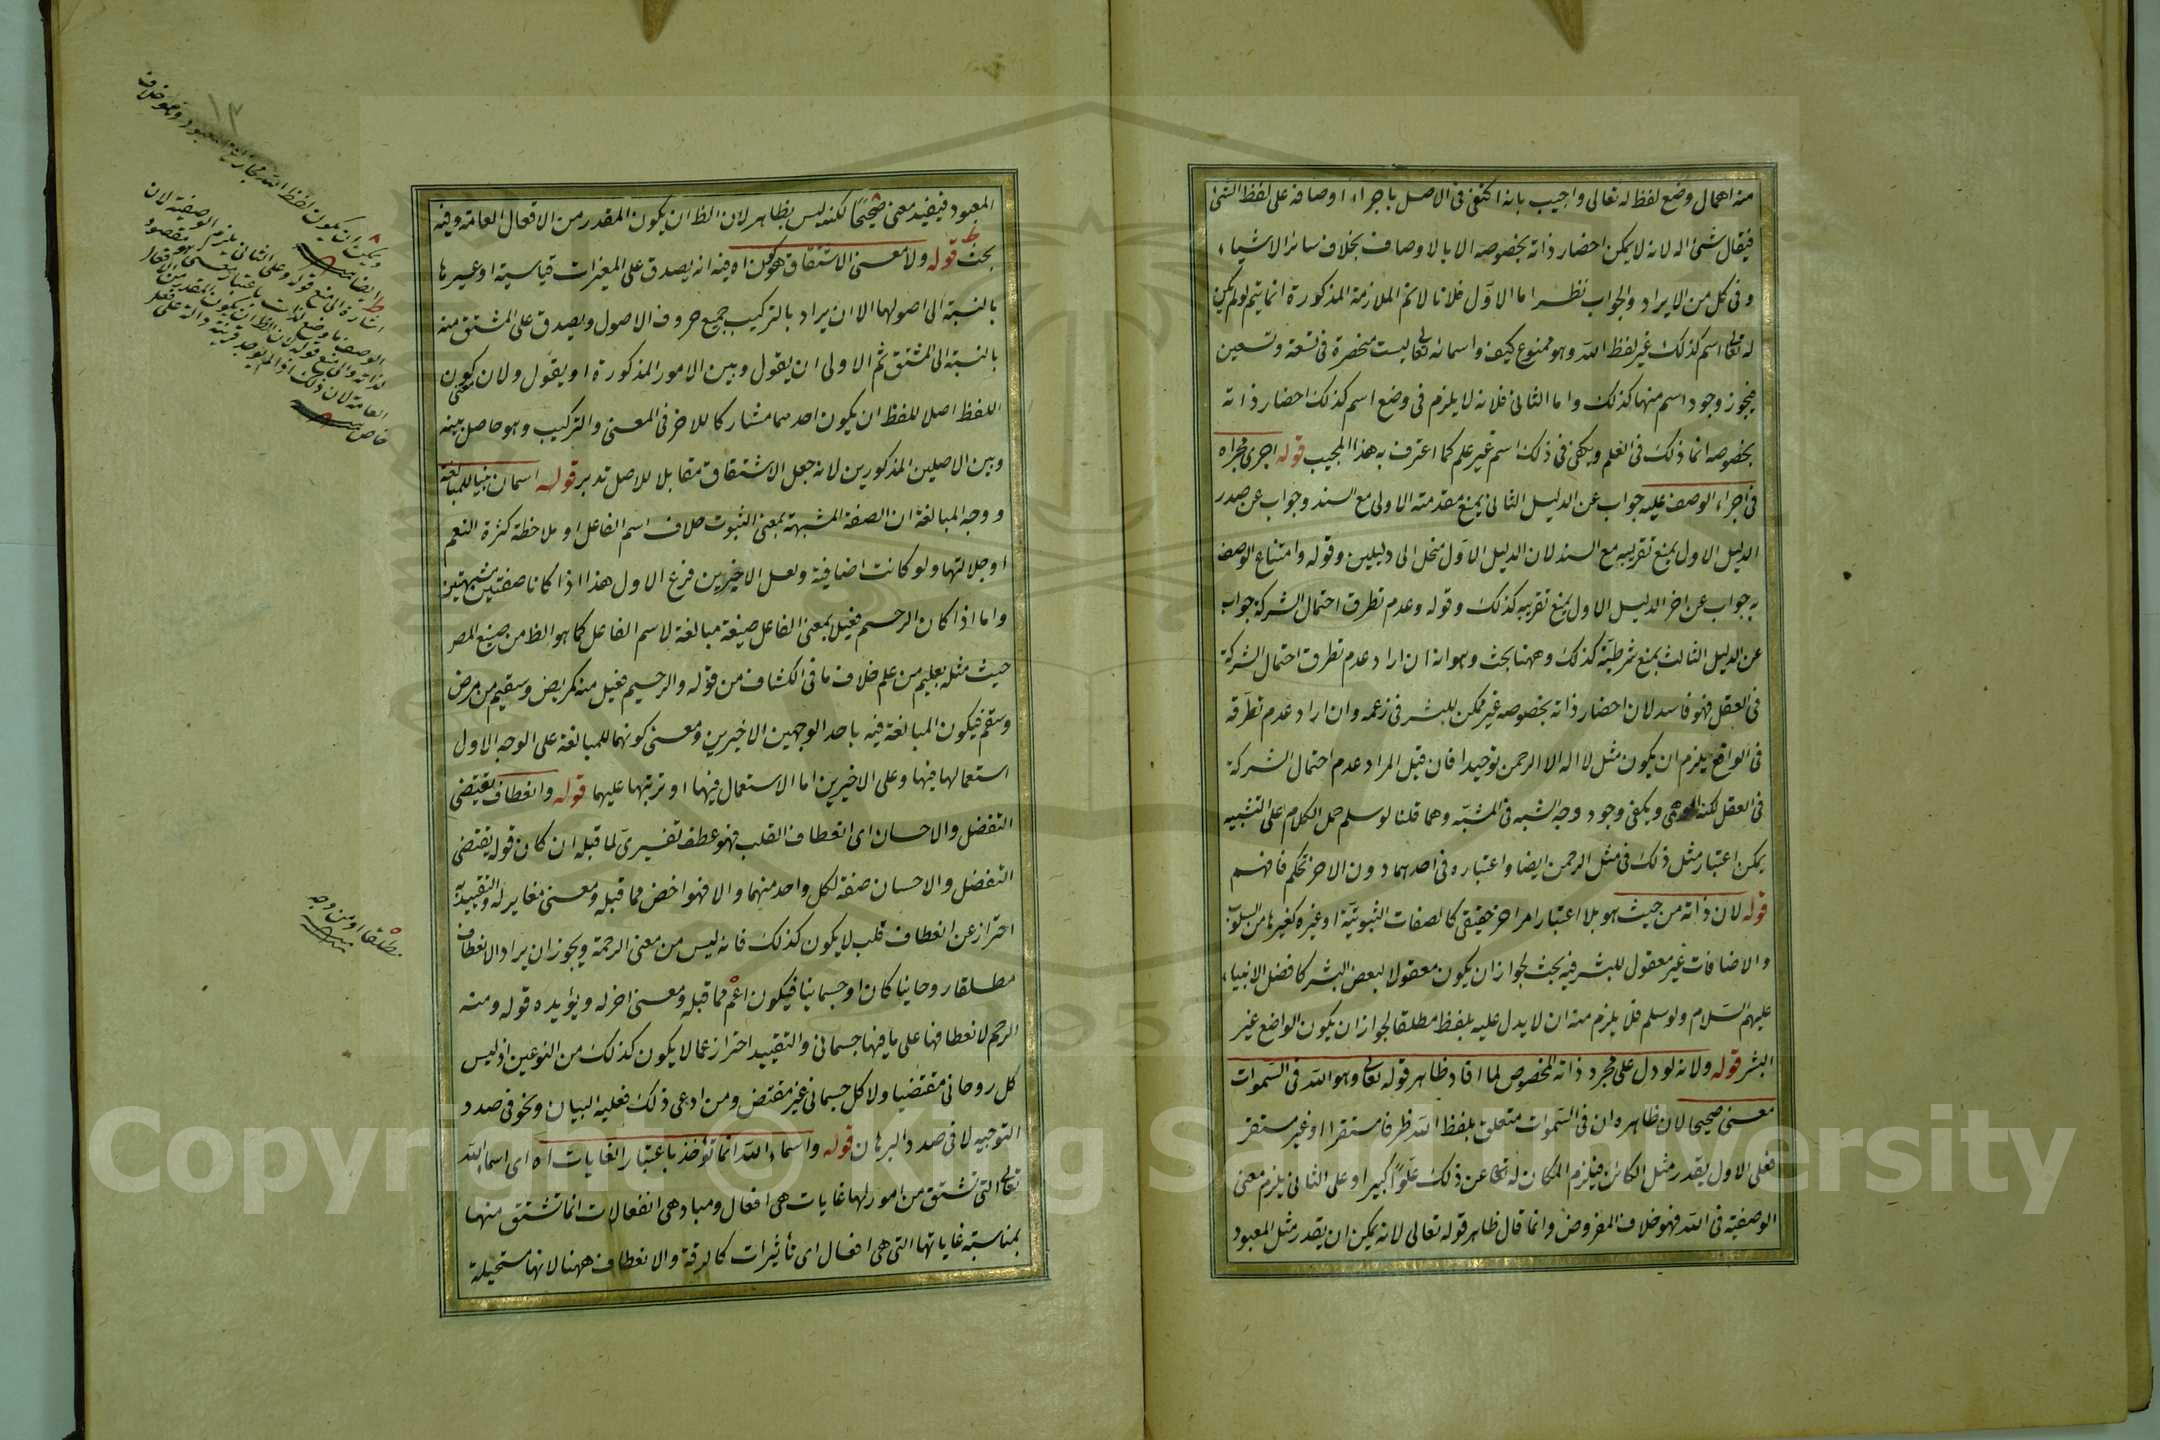 منه اهمال وضع لفظ له تعالى واجيب بانه اكتفى فى الاصل باجراء اوصافه على لفظ الشئ
فيقال شئ اله لانه لا يمكن احضار ذاته بخصوصه الا بالاوصاف بخلاف سائر الاشياء
وفى كل من الايراد والجواب نظر اما الاول فلانا لا نم الملازمة المذكورة انما يتم لو لم يكن
له تعالى اسم كذلك غير لفظ الله وهو ممنوع كيف واسمائه تعالى ليست منحصرة فى تسعة وتسعين
فيجوز وجود اسم منها كذلك واما الثانى فلانه لا يلزم فى وضع اسم كذلك احضار ذاته
بخصوصه انما ذلك فى العلم ويكفى فى ذلك اسم غير علم كما اعترف به هذا المجيب قوله اجرى مجراه
فى اجراء الوصف عليه جواب عن الدليل الثانى بمنع مقدمته الاولى مع السند وجواب عن صدر
الدليل الاول بمنع تقريبه مع السند لان الدليل الاول منحل الى دليلين وقوله وامتناع الوصف
به جواب عن اخر الدليل الاول بمنع تقريبه كذلك وقوله وعدم تطرق احتمال الشركة جواب
عن الدليل الثالث بمنع شرطيته كذلك وههنا بحث وهو انه ان اراد عدم تطرق احتمال الشركة
فى العقل فهو فاسد لان احضار ذاته بخصوصه غير ممكن للبشر فى زعمه وان اراد عدم تطرقه
فى الواقع يلزم ان يكون مثل لا اله الا الرحمن توحيدا فان قيل المراد عدم احتمال الشركة
فى العقل لكنه وهمى ويكفى وجود وجه الشبه فى المشبه وهما قلنا لو سلم حمل الكلام على التشبيه
يمكن اعتبار مثل ذلك فى مثل الرحمن ايضا واعتباره فى احدهما دون الاخر تحكم فافهم
قوله لان ذاته من حيث هو بلا اعتبار امر اخر حقيقى كالصفات الثبوتية او غيره كغيرها من السلوب
والاضافات غير معقول للبشر فيه بحث لجواز ان يكون معقولا لبعض البشر كافضل الانبياء
عليهم السلام ولو سلم فلا يلزم منه ان لا يدل عليه بلفظ مطلقا لجواز ان يكون الواضع غير
البشر قوله ولانه لو دل على مجرد ذاته المخصوص لما افاد ظاهر قوله تعالى وهو الله فى السموات
معنى صحيحا لان ظاهره ان فى السموات متعلق بلفظ الله ظرفا مستقرا او غير مستقر
فعلى الاول يقدر مثل الكائن فيلزم المكان له تعالى عن ذلك علوا كبيرا وعلى الثانى يلزم معنى
الوصفية فى الله فهو خلاف المفروض وانما قال ظاهر قوله تعالى لانه يمكن ان يقدر مثل المعبود
المعبود فيفيد معنى صحيحا لكنه ليس بظاهر لان الظ ان يكون المقدر من الافعال العامة وفيه
بحث قوله ولا معنى الاشتقاق هو كون اه فيه انه يصدق على المغيرات قياسية او غيرها
بالنسبة الى اصولها الا ان يراد بالتركيب جميع حروف الاصول ويصدق على المشتق منه
بالنسبة الى المشتق ثم الاولى ان يقول وبين الامور المذكورة او يقول ولان معنى كون
اللفظ اصلا للفظ ان يكون احدهما مشاركا للاخر فى المعنى والتركيب وهو حاصل بينه
وبين الاصلين المذكورين لانه جعل الاشتقاق مقابلا للاصل تدبر قوله اسمان بنيا للمبالغة
ووجه المبالغة ان الصفة المشبهة بمعنى الثبوت خلاف اسم الفاعل او ملاحظة كثرة النعم
او جلالتها ولو كانت اضافية ولعل الاخيرين فرع الاول هذا اذا كانا صفتين مشبهتين
واما اذا كان الرحيم فعيل بمعنى الفاعل صيغة مبالغة لاسم الفاعل كما هو الظ من صنيع المص
حيث مثله بعليم من علم خلاف ما فى الكشاف من قوله والرحيم فعيل منه كمريض وسقيم من مرض
وسقم فيكون المبالغة فيه باحد الوجهين الاخيرين ومعنى كونهما للمبالغة على الوجه الاول
استعمالها فيها وعلى الاخيرين اما الاستعمال فيها او ترتبها عليهما قوله وانعطاف يقتضى
التفضل والاحسان اى انعطاف القلب فهو عطف تفسيرى لما قبله ان كان قوله يقتضى
التفضل والاحسان صفة لكل واحد منهما والا فهو اخص مما قبله ومعنى مغاير له والتقييد به
احتراز عن انعطاف قلب لا يكون كذلك فانه ليس من معنى الرحمة ويجوز ان يراد الانعطاف
مطلقا روحانيا كان او جسمانيا فيكون اعم مما قبله ومعنى اخر له ويؤيده قوله ومنه
الرحم لانعطافها على ما فيها جسمانى والتقييد احتراز عما لا يكون كذلك من النوعين اذ ليس
كل روحانى مقتضيا ولا كل جسمانى غير مقتض ومن ادعى ذلك فعليه البيان ونحو فى صدد
التوجيه لا فى صدد البرهان قوله واسماء الله انما تؤخذ باعتبار الغايات اه اى اسماء الله
تعالى التى تشتق من امور لها غايات هى افعال ومباد هى انفعالات انما تشتق منها
بمناسبة غاياتها التى هى افعال اى تأثيرات كالرقة والانعطاف ههنا لانها مستحيلة
١٣
ايضا
اشارة الى منع قوله وعلى الثانى يلزم الوصفية لان
خاص
مطلقا او من وجه
منه
Copyright © King Saud University